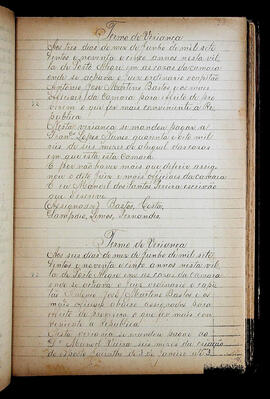 Termo de Veriança
Aos tres dias do mez de Junho de mil sete
centos e noventa e cinco annos nesta vil
la de Porto Alegre em as casas da camara
onde se achava o Juiz ordinario o capitão
Antonio José Martins Bastos e os mais
officiaes da Camara para effeito de pro
verem o que for mais conveniente a Re
publica
Nesta veriança se mandou pagar a
Lopes Nunes quarenta e oito mil
reis de seis mezes do aluguel das casas
em que está esta Camara
E por não haver mais que deferir assig
nou o dito Juiz e mais officiaes da Camara
E eu Manoel dos Santos Pereira escrivão
que escrevi
(Assignados) Bastos, Costa,
Sampaio, Lemos, Fernandes.
Termo de Veriança
Aos seis dias do mez de Junho de mil sete
centos e noventa e cinco annos nesta vil
la de Porto Alegre em as casas da camara
onde se achava o Juiz ordinario o capi
tão Antonio José Martins Bastos e os
mais officiaes abaixo assignados para
effeito de proverem o que for mais con
veniente a Republica
Nesta veriança se mandou pagar ao
Manoel Vieira seis mezes da criação
do exposto de 3 de Janeiro até 3